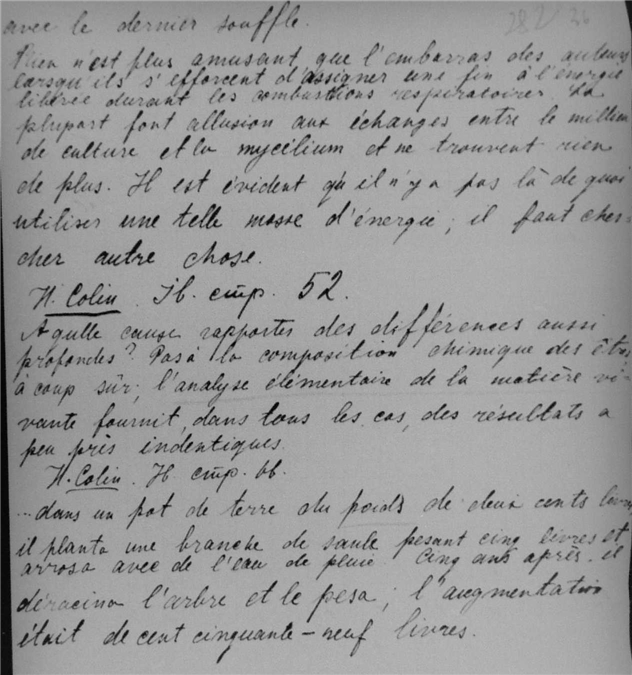 avec le dernier souffle.
282 26
Rien n'est plus amusant que l'embarras des auteurs
lorsqu'ils s'efforcent d'assigner une fin à l'énergie
libérée durant les combustions respiratoires. La
plupart font allusion aux échanges entre le milieu
de culture et la mycilium et ne trouvent rien
de plus. Il est évident qu'il n'y a pas là de quoi
utiliser une telle masse d'énergie; il faut cher-
cher autre chose.
H. Colin. Ib. стр. 52.
A qulle cause rapporter des différences aussi
profondes? Pas à la composition chimique des êtres
à coup sûr; l'analyse élémentaire de la matière vi-
vante fournit, dans tous les cas, des résultats a
peu près indentiques.
H. Colin. Ib стр. 66.
...dans un pot de terre du poids de deux cents livres
il planta une branche de saule pesant cinq livres et
arrosa avec de l'eau de pluie. Cinq ans après. il
déracina l'arbre et le pesa; l'augmentation
était de cent cinquante-neuf livres.